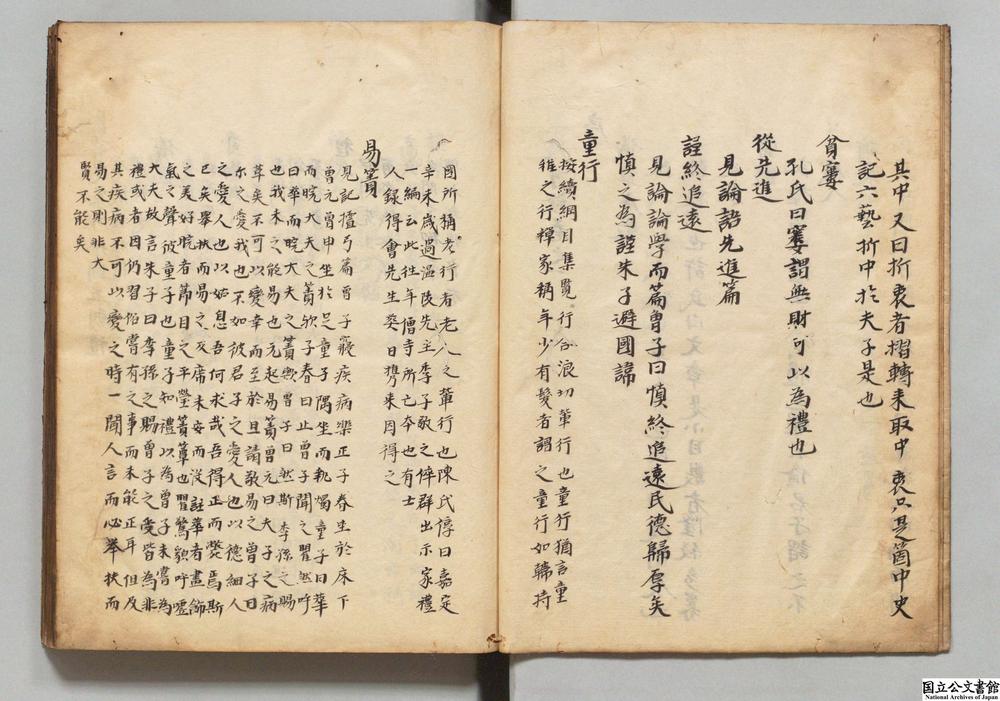 其中又曰折衷者摺轉来取中衷只是箇中史
記六藝折中於夫子是也
貧窶
孔氏曰窶謂無財可以為禮也
從先進
見論語先進篇
謹終追遠
見論論學而篇曽子曰慎終追遠民德歸厚矣
慎之為謹朱子避國諱
童行
按續綱目集覽行合浪切軰行也童行猶言童
稚之行釋家稱年少有髪者謂之童行如歸持
國所稱老行者老人之軰行也陳氏淳曰嘉定
辛未歳過温陵先生季子敬之倅群出示家禮
一編云此徃年僧寺所亡夲也有士
人録得會先生葵日携来因得之
易簀
見記檀弓篇曽子寢疾病樂正子春坐於床下
曽元曽申坐於足童子隅坐而執燭童子曰華
而睆大夫之簀欤子春曰止曽子聞之瞿然呼
曰華而睆大夫之簀欤曽子曰然斯季孫之賜
也我未之能易也元起易簀曽元曰夫子之病
革矣不可以變幸而至於旦請敬易之曽子曰
尓之愛我也不如彼君子之愛人也以德細人
之愛人也以姑息吾何求哉吾得正而斃焉斯
已矣舉扶而易之反席未安而沒註華者畫飾
之美好睆者節目之平瑩簀簟也瞿驚貌呼嘘
氣之聲彼童子也童子知禮以為曽子未嘗為
大夫故言朱子曰季孫之賜曽子之受皆為非
禮或者因仍習俗嘗有之事而未能正耳但及
其疾病不可以變之時一聞人言而必舉扶而
易之則非大
賢不能矣
国立公文書館
National Archives of Japan